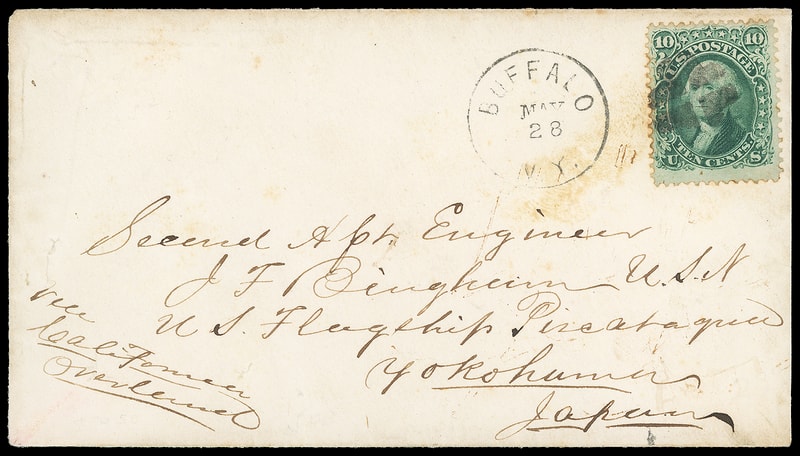 BUFFALO
MAY
28
N.Y.
10 10
U.S. POSTAGE
U TEN CENTS. S
Second Asst. Engineer
J F Bingham U.S.N
U S. Flagship Piscataqua
Yokohama
Japan
via
California
Overland